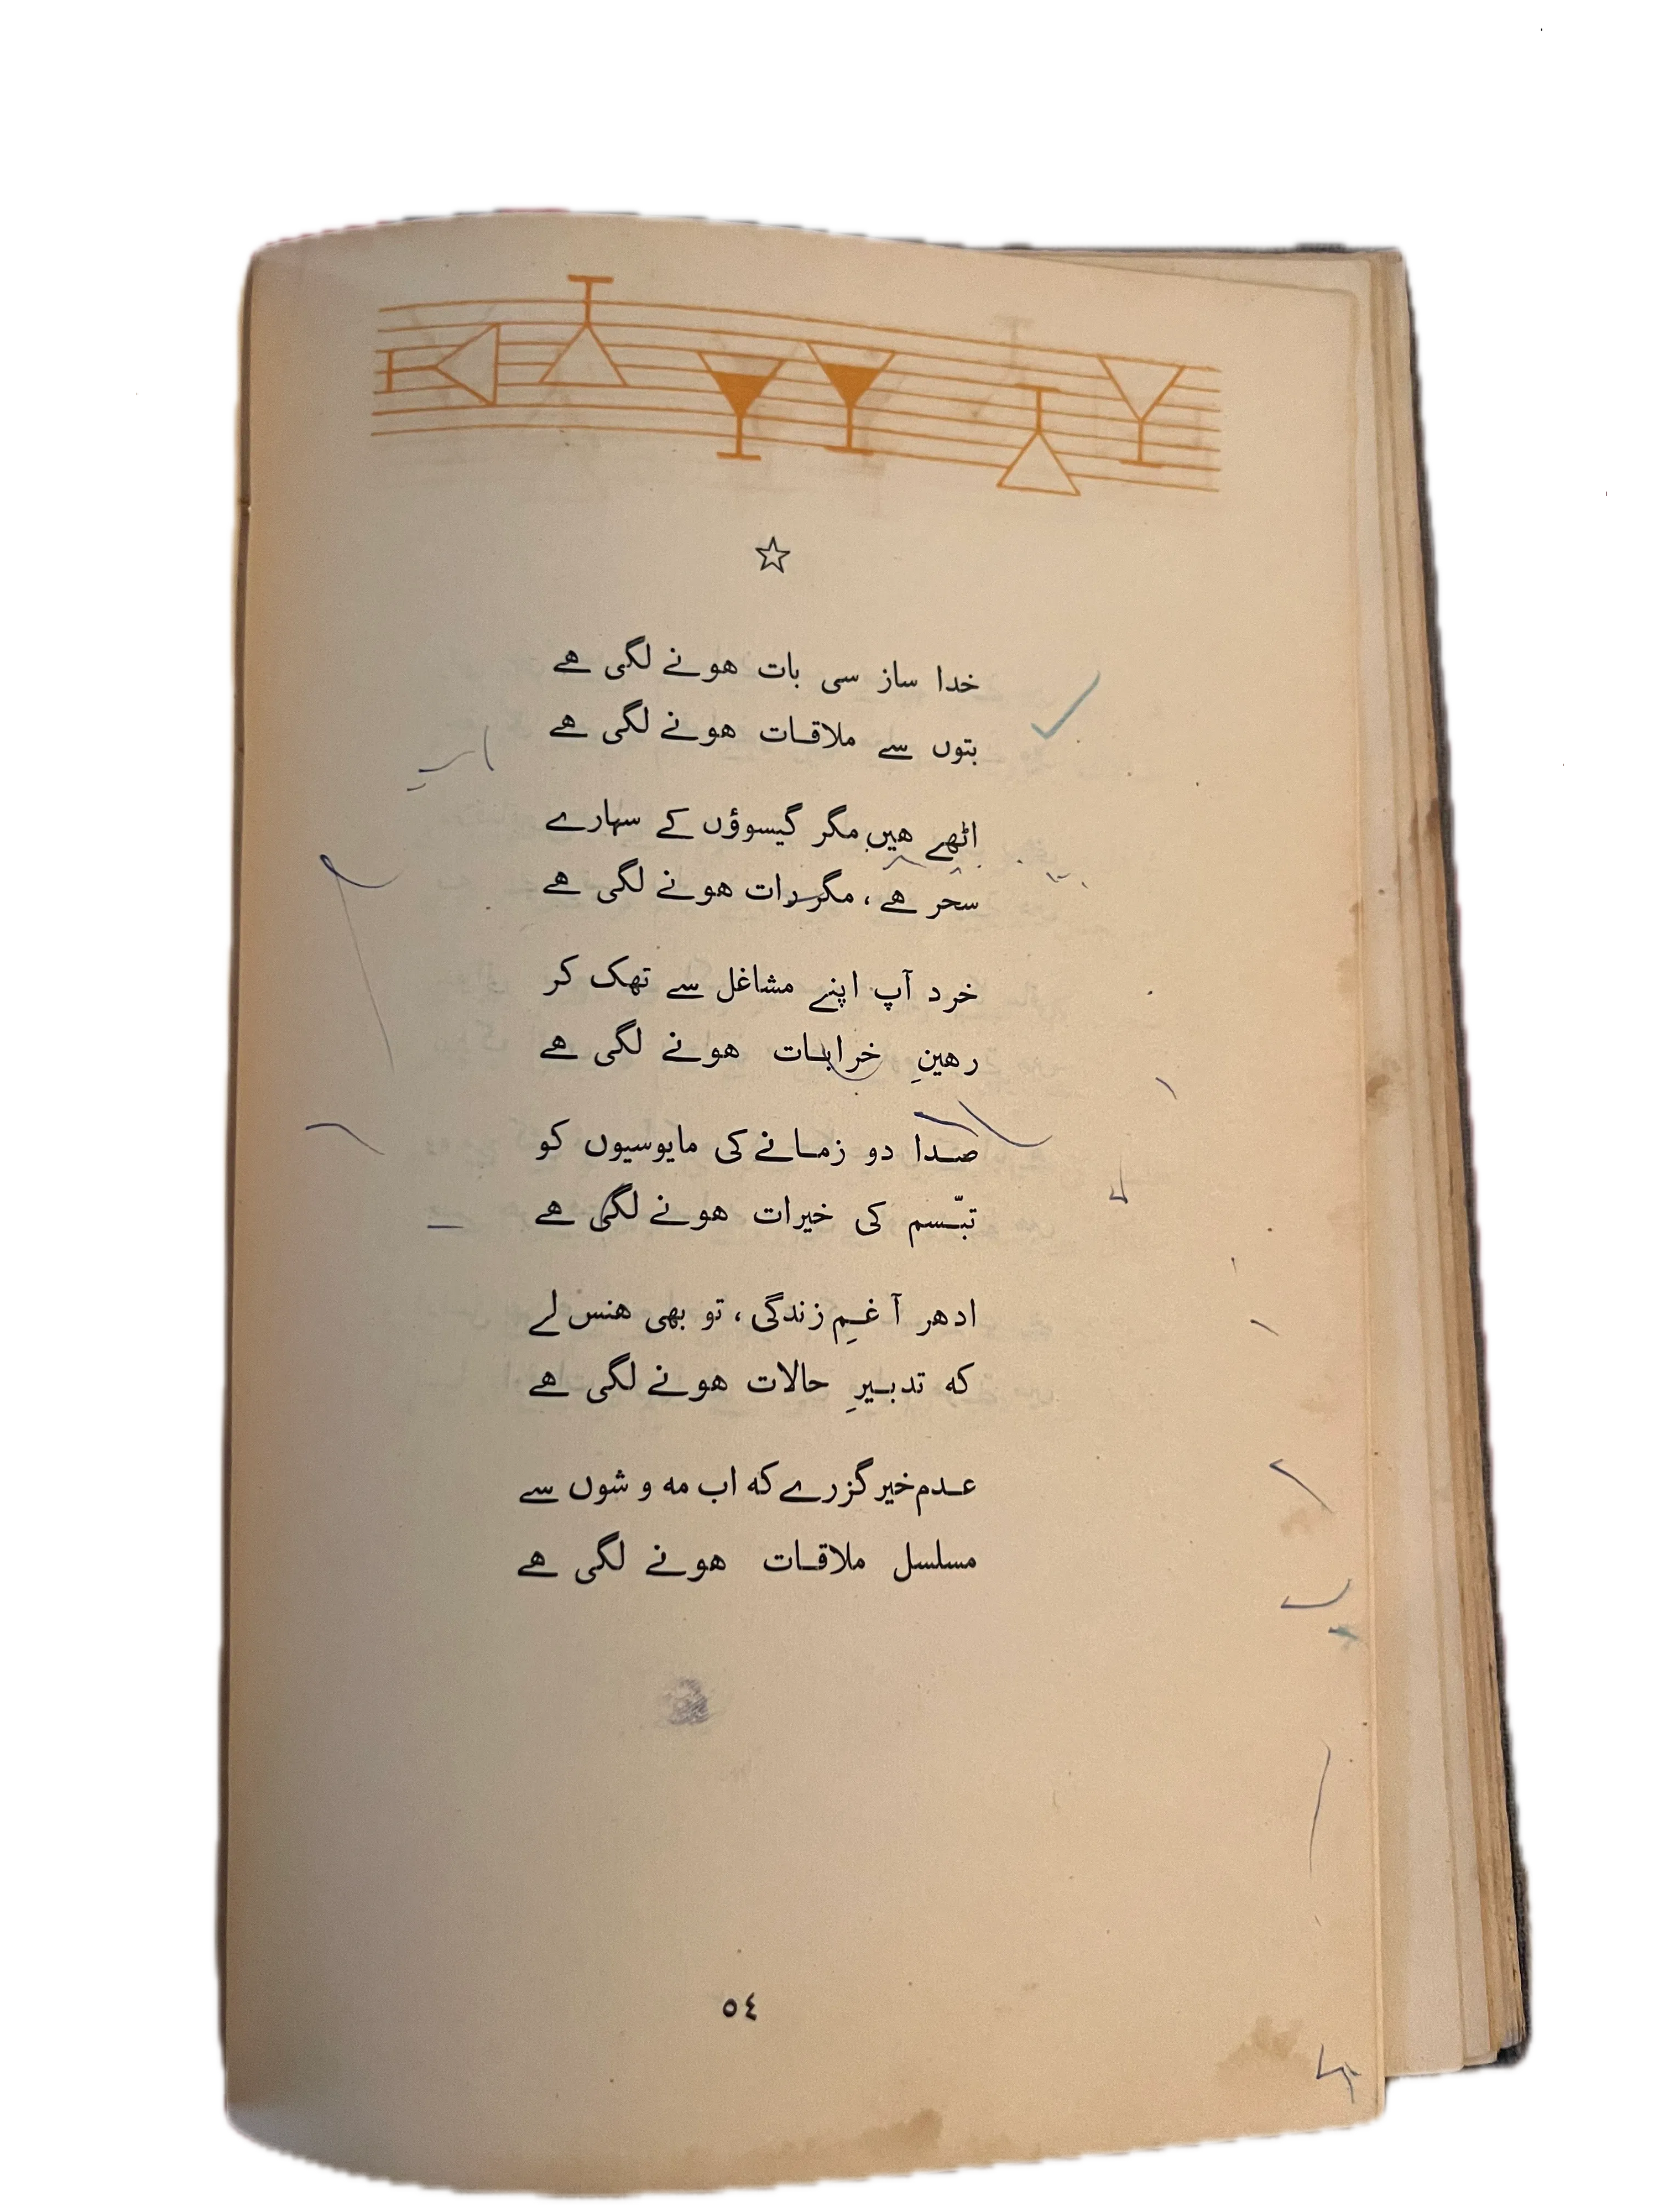 خدا ساز سی بات هونے لگی هے
بتوں سے ملاقات هونے لگی هے
اٹھے هیں مگر گیسوؤں کے سہارے
سحر هے، مگر رات هونے لگی هے
خرد آپ اپنے مشاغل سے تھک کر
رهینِ خرابات هونے لگی هے
صدا دو زمانے کی مایوسیوں کو
تبّسم کی خیرات هونے لگی هے
ادهر آ غمِ زندگی، تو بھی هنس لے
که تدبیرِ حالات هونے لگی هے
عدم خیر گزرے که اب مه و شوں سے
مسلسل ملاقات هونے لگی هے
٥٤